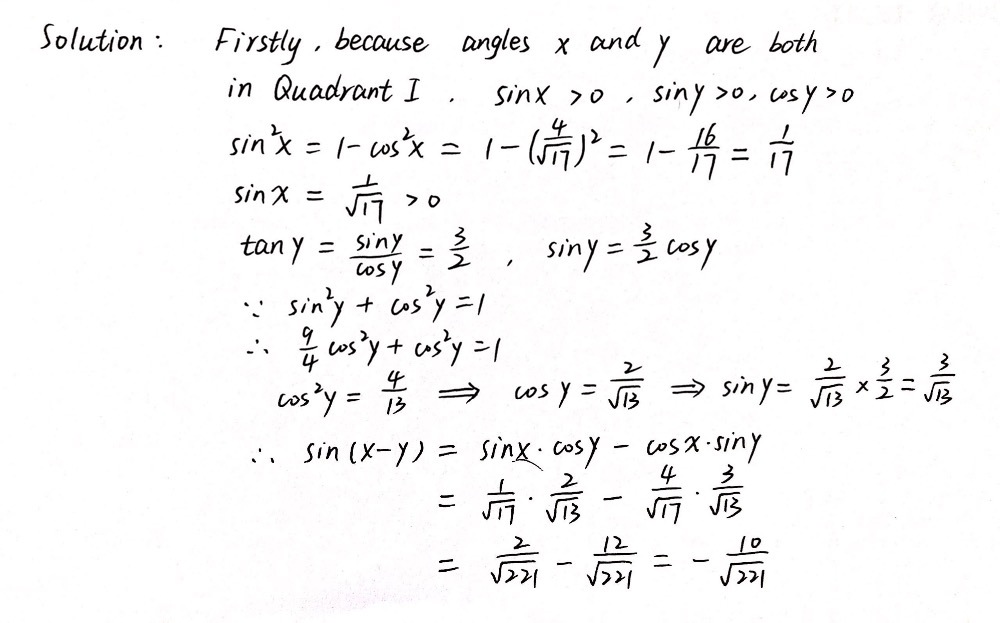 Solution: Firstly, because angles x and y are both
in Quadrant I. sinx >0, siny >0, cosy >0
sin²x = 1-cos²x = 1-(4/√17)² = 1-16/17 = 1/17
sinx = 1/√17 >0
tany = siny/cosy = 3/2, siny = 3/2 cosy
∵ sin²y + cos²y =1
∴ 9/4 cos²y + cos²y =1
cos²y = 4/13 ⟹ cosy = 2/√13 ⟹ siny = 2/√13 × 3/2 = 3/√13
∴ sin(x-y) = sinx·cosy - cosx·siny
= 1/√17 · 2/√13 - 4/√17 · 3/√13
= 2/√221 - 12/√221 = - 10/√221